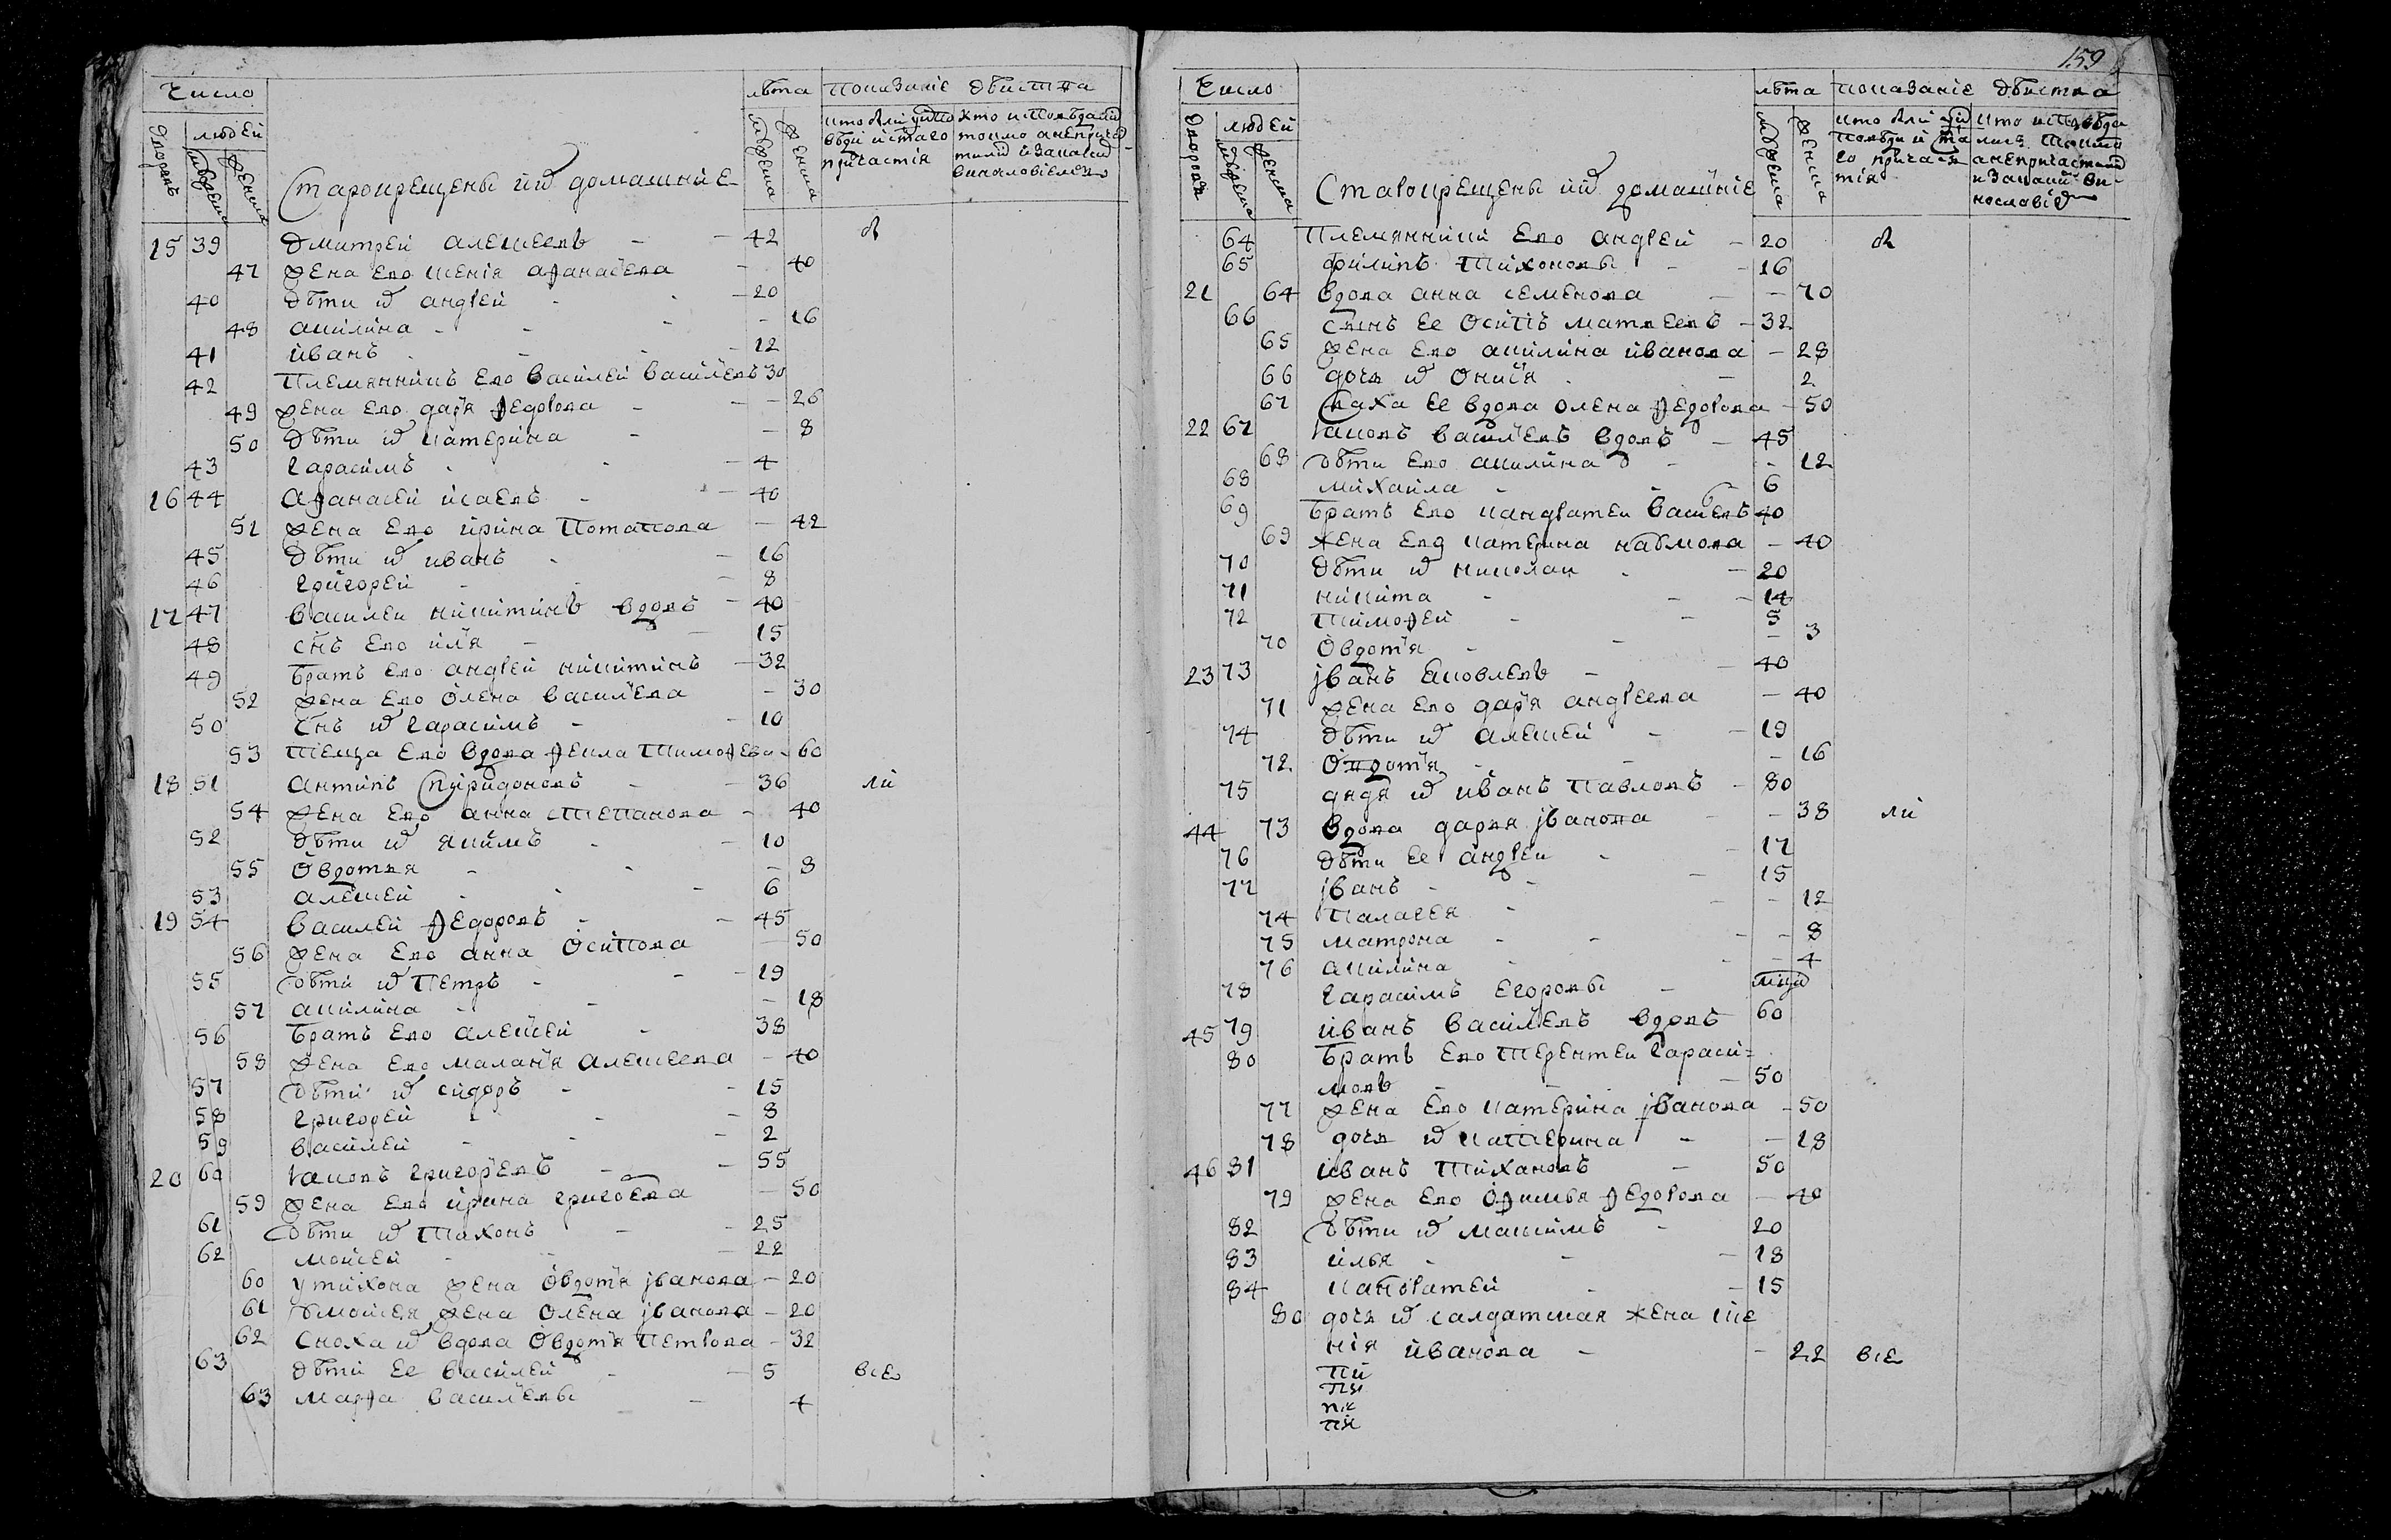 Число
лѣта показанїе дѣиства
людей
Дворовъ
мужеска
женска
мужеска
женска
причастїя
Старокрещены ихъ домашнїе
15 39 Дмитрей алексеевъ - 42
47 жена ево ксенїя афанасева - 40
40 дѣти их андрей - 20
48 акилина - 16
41 иванъ - 12
42 племянникъ ево василей василевъ 30
49 жена ево даря федорова - 26
50 дѣти их катерина - 8
43 гарасимъ - 4
16 44 афанасей исаевъ - 40
51 жена ево ирина потапова - 42
45 дѣти их иванъ - 16
46 григорей - 8
17 47 василеи никитинъ вдовъ - 40
48 снъ ево иля - 15
49 братъ ево андрей никитинъ - 32
52 жена ево олена василева - 30
50 снъ их гарасимъ - 10
53 теща ево вдова фекла тимофева - 60
18 51 антипъ спиридоновъ - 36 ли
54 жена ево анна степанова - 40
52 дѣти их якимъ - 10
55 овдотья - 8
53 алексей - 6
19 54 василей федоровъ - 45
56 жена ево анна осипова - 50
55 дѣти их петръ - 19
57 акилина - 18
56 братъ ево алексей - 38
58 жена ево маланя алексеева - 40
57 дѣти их сидоръ - 15
58 григорей - 8
59 василей - 2
20 60 яковъ григоревъ - 55
59 жена ево ирина григоева - 50
61 дѣти их тихонъ - 25
62 моисей - 22
60 у тихона жена овдотя iванова - 20
61 у моисея жена олена iванова - 20
62 сноха их вдова овдотя петрова - 32
63 дѣти ее василей - 5 все
63 марфа василевы - 4
159
Число
лѣта показанїе дѣиства
людей
мужеска
женска
мужеска
женска
Старокрещены их домашнїе
64 племянники ево андрей - 20
65 филипъ тихоновы - 16
21 64 вдова анна семенова - 70
66 сынъ ее осипъ матвеевъ - 32
65 жена ево акилина иванова - 28
66 дочь их онися - 2
67 сноха ее вдова олена федорова - 50
22 67 яковъ василевъ вдовъ - 45
68 дѣти ево акилина - 12
68 михаила - 6
69 братъ ево кандратеи василевъ 40
69 жена ево катерина наѣмова - 40
70 дѣти их николаи - 20
71 никита - 14
72 тимофей - 5
70 овдотя - 3
23 73 iванъ яковлевъ - 40
71 жена ево даря андреева - 40
74 дѣти их алексей - 19
72 овдотя - 16
75 дядя их иванъ павловъ - 80
44 73 вдова дарья iванова - 38 ли
76 дѣти ее андрей - 17
77 iванъ - 15
74 палагея - 12
75 матрона - 8
76 акилина - 4
78 гарасимъ егоровы -
45 79 иванъ василевъ вдовъ 60
80 братъ ево терентеи гараси-
мовъ - 50
77 жена ево катерина iванова - 50
78 дочь их катерина - 18
46 81 иванъ тихановъ - 50
79 жена ево офимья федорова - 40
82 дѣти их максимъ - 20
83 илья - 18
84 кандратей - 15
80 дочь их салдатская жена ксе
нїя иванова - 22 все